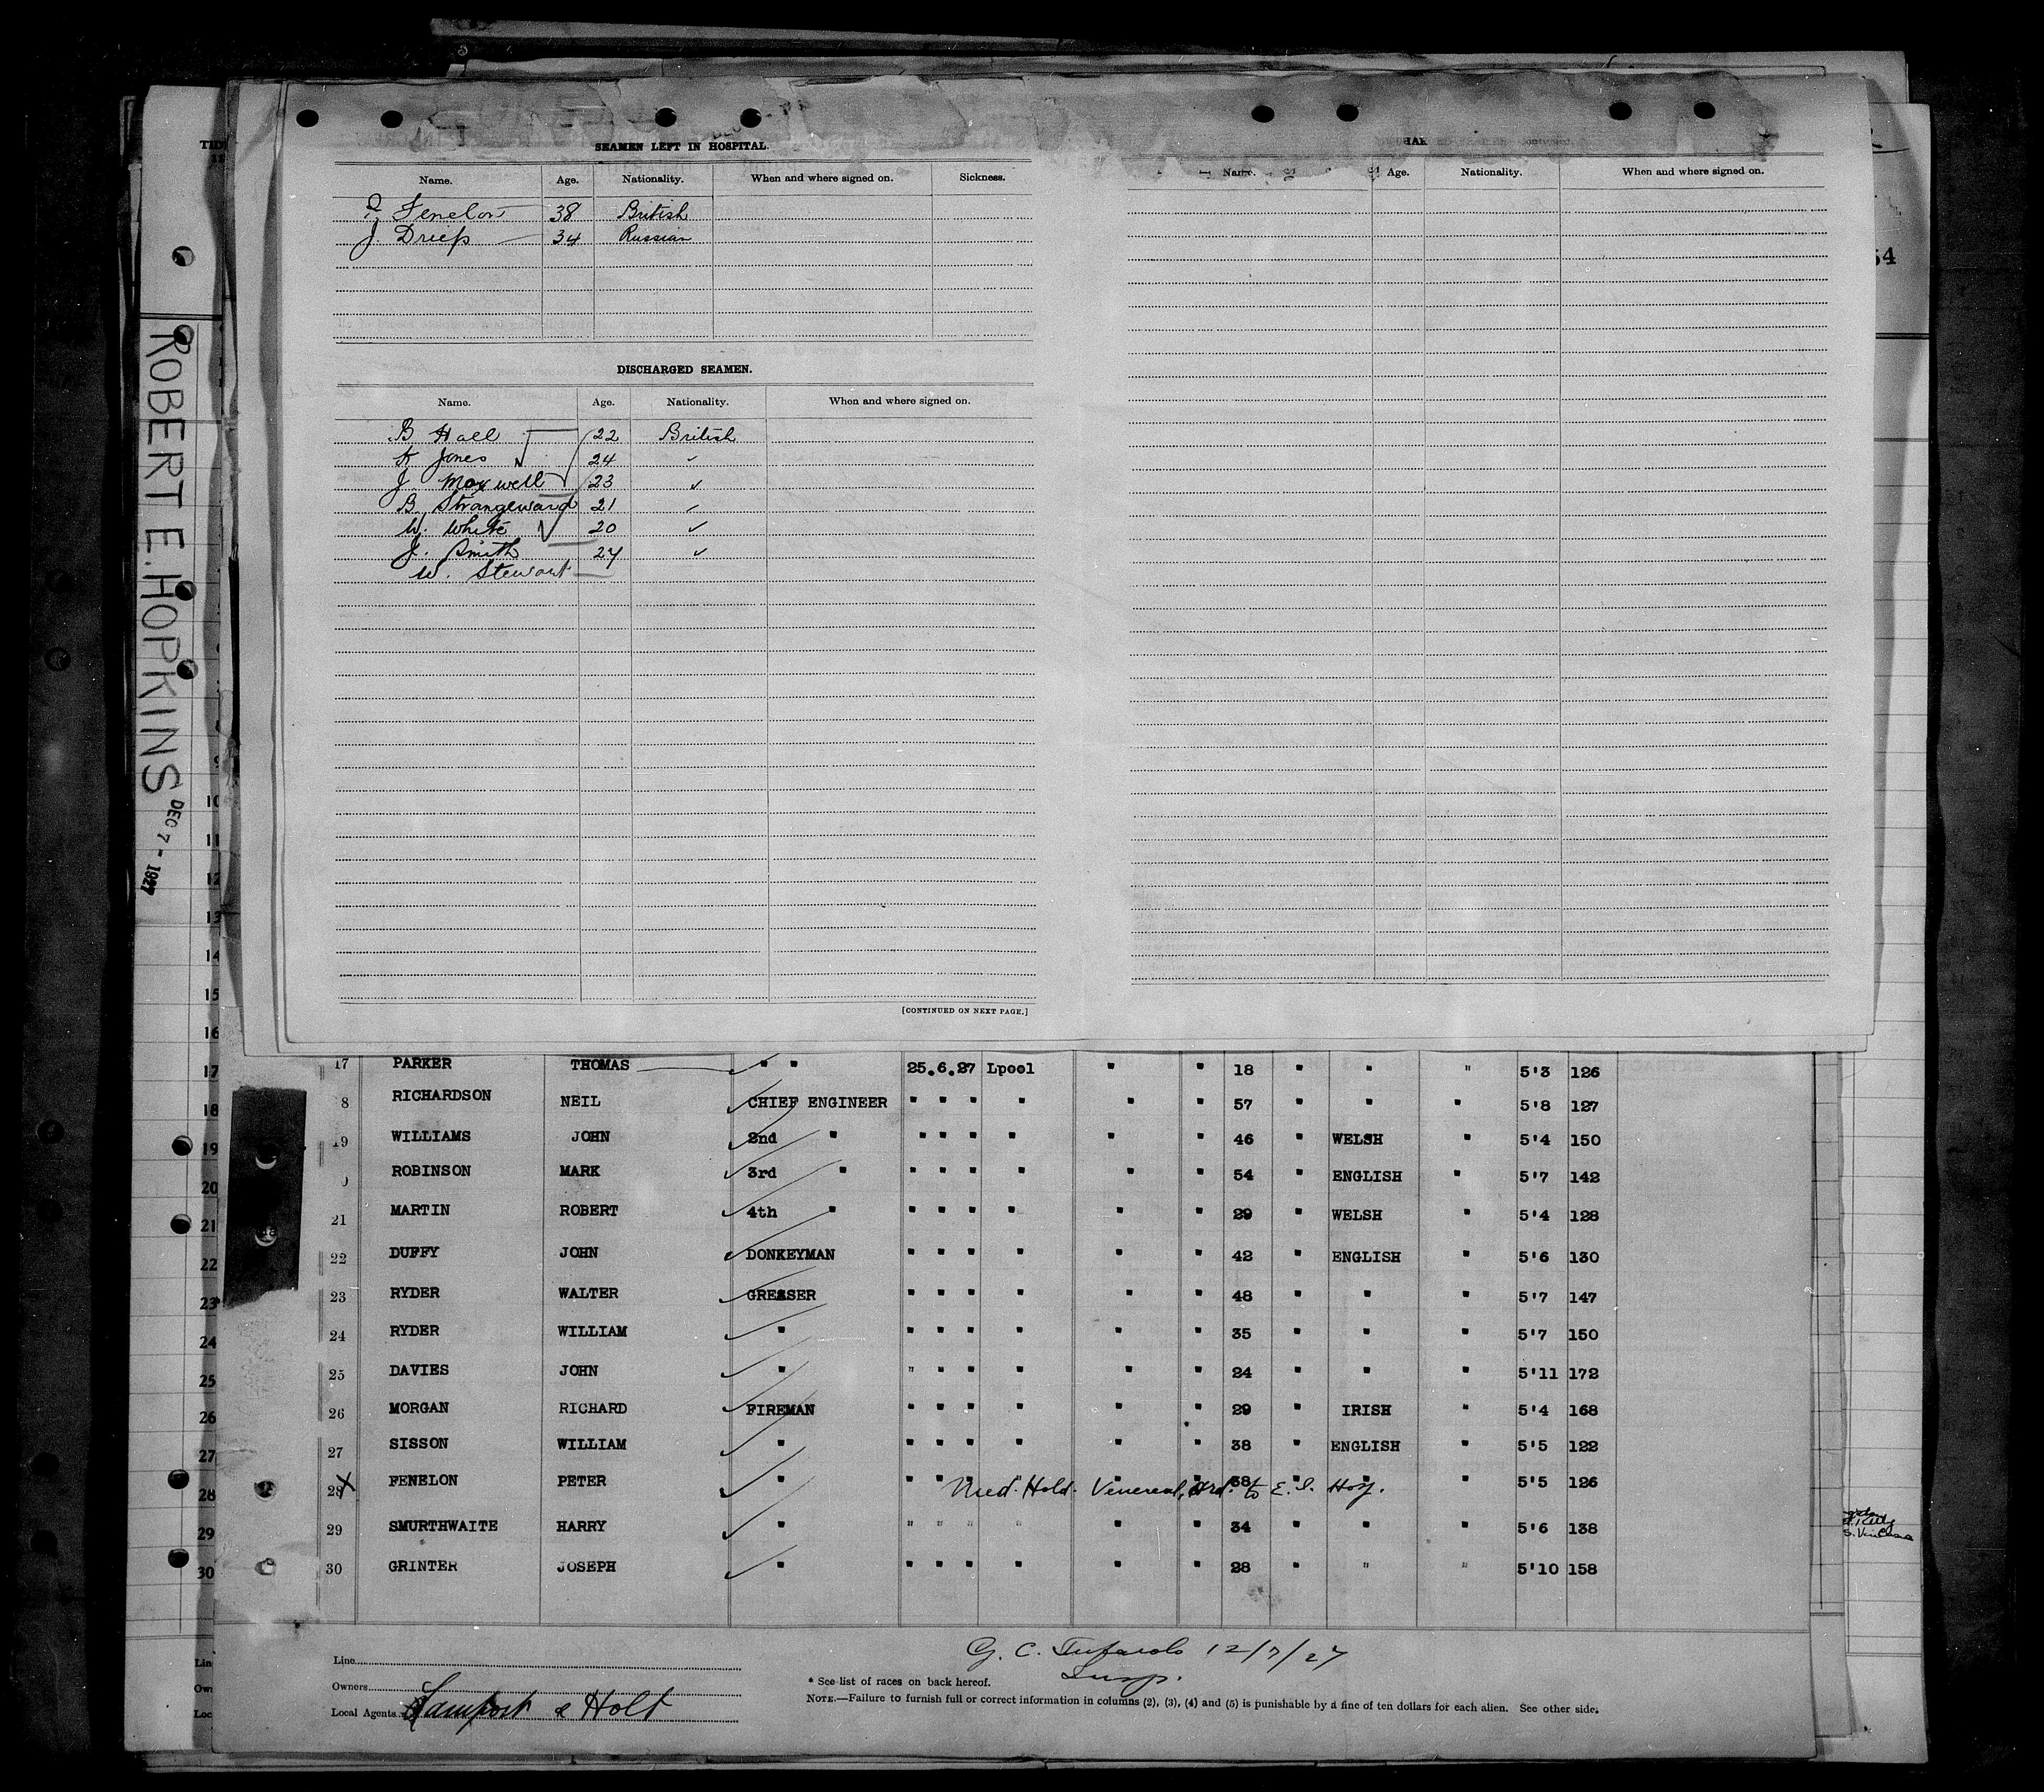 SEAMEN LEFT IN HOSPITAL.
Name. Age. Nationality. When and where signed on. Sickness.
Fenelon 38 British
J. Drieps 34 Russian
DISCHARGED SEAMEN.
Name. Age. Nationality. When and where signed on.
B Hall 22 British
K Jones 24 ✓
J. Maxwell 23 ✓
B. Strangeward 21 ✓
W. White 20 ✓
J. Smith 24 ✓
W. Stewart
[CONTINUED ON NEXT PAGE.]
Name. Age. Nationality. When and where signed on.
54
ROBERT E. HOPKINS
DEC 7 - 1927
10
11
12
13
14
15
16
17
18
19
20
21
22
23
24
25
26
27
28
29
30
17 PARKER THOMAS " " 25.6.27 Lpool " " 18 " " " 5'3 126
8 RICHARDSON NEIL CHIEF ENGINEER " " " " " " 57 " " " 5'8 127
19 WILLIAMS JOHN 2nd " " " " " " " 46 " WELSH " 5'4 150
ROBINSON MARK 3rd " " " " " " " 54 " ENGLISH " 5'7 142
21 MARTIN ROBERT 4th " " " " " " " 29 " WELSH " 5'4 128
22 DUFFY JOHN DONKEYMAN " " " " " " 42 " ENGLISH " 5'6 130
23 RYDER WALTER GREASER " " " " " " 48 " " " 5'7 147
24 RYDER WILLIAM " " " " " " " 35 " " " 5'7 150
25 DAVIES JOHN " " " " " " " 24 " " " 5'11 172
26 MORGAN RICHARD FIREMAN " " " " " " 29 " IRISH " 5'4 168
27 SISSON WILLIAM " " " " " " " 38 " ENGLISH " 5'5 122
28 X FENELON PETER " " " " " " " 38 " " " 5'5 126
Med. Hold. Venereal, Ord. to E. I. Hosp.
29 SMURTHWAITE HARRY " " " " " " " 34 " " " 5'6 138
30 GRINTER JOSEPH " " " " " " " 28 " " " 5'10 158
G. C. 12/7/27
Insp.
Line
Owners
Local Agents Lamport & Holt
* See list of races on back hereof.
NOTE.—Failure to furnish full or correct information in columns (2), (3), (4) and (5) is punishable by a fine of ten dollars for each alien. See other side.